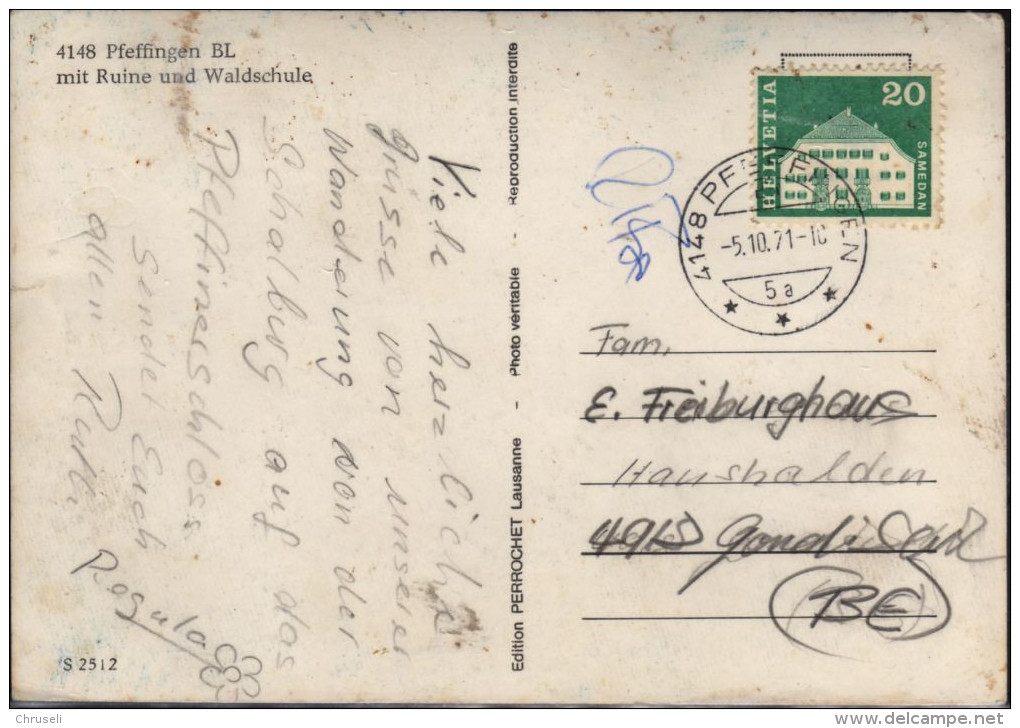 4148 Pfeffingen BL
mit Ruine und Waldschule
Viele herzliche
Grüsse von unserer
Wanderung von der
Schalburg auf das
Pfeffingerschloss
sendet Euch
allen Ruth,
Regula
S 2512
Edition PERROCHET Lausanne - Photo véritable - Reproduction interdite
HELVETIA
20
SAMEDAN
4148 PFEFFINGEN
-5.10.71-
5a
Fam.
E. Freiburghaus
Haushalden
Gondiswil
(BE)
Chruseli
www.delcampe.net